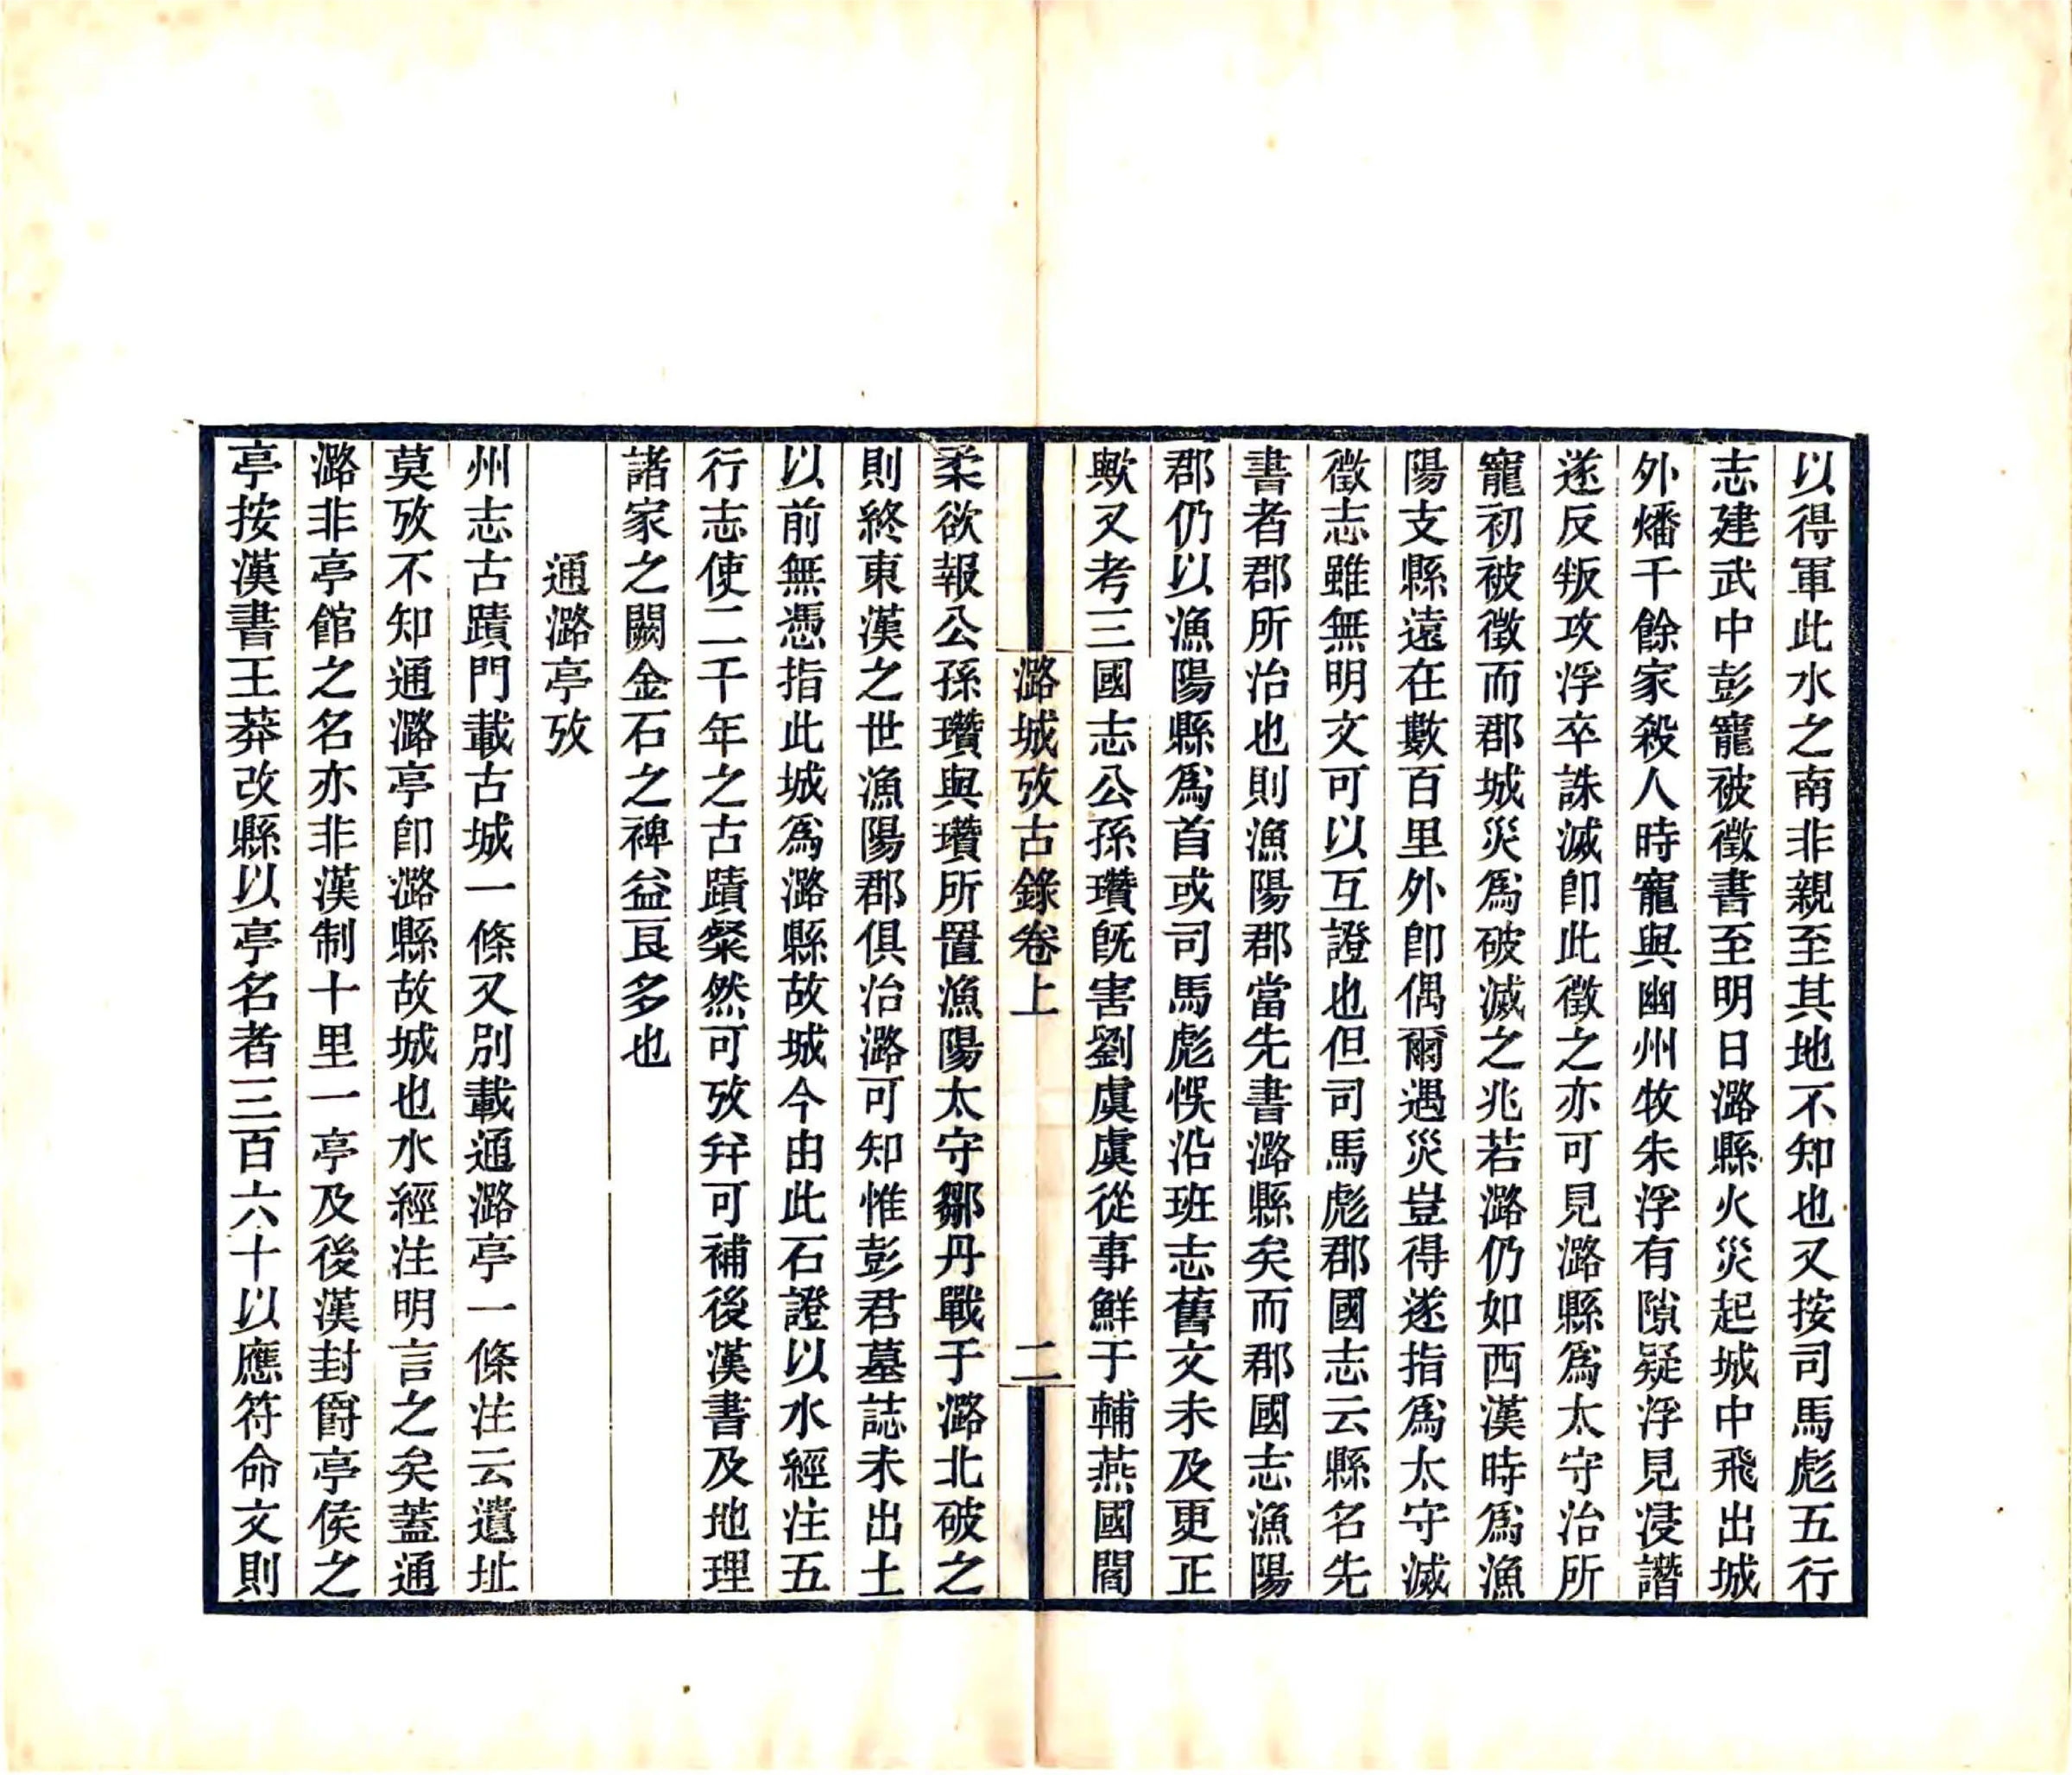 以得軍此水之南非親至其地不知也又按司馬彪五行
志建武中彭寵被徵書至明日潞縣火災起城中飛出城
外燔千餘家殺人時寵與幽州牧朱浮有隙疑浮見浸譖
遂反叛攻浮卒誅滅卽此徵之亦可見潞縣爲太守治所
寵初被徵而郡城災爲破滅之兆若潞仍如西漢時爲漁
陽支縣遠在數百里外卽偶爾遇災豈得遂指爲太守滅
徵志雖無明文可以互證也但司馬彪郡國志云縣名先
書者郡所治也則漁陽郡當先書潞縣矣而郡國志漁陽
郡仍以漁陽縣爲首或司馬彪悞沿班志舊文未及更正
歟又考三國志公孫瓚旣害劉虞虞從事鮮于輔燕國閻
潞城攷古錄卷上 二
柔欲報公孫瓚與瓚所置漁陽太守鄒丹戰于潞北破之
則終東漢之世漁陽郡俱治潞可知惟彭君墓誌未出土
以前無憑指此城爲潞縣故城今由此石證以水經注五
行志使二千年之古蹟粲然可攷幷可補後漢書及地理
諸家之闕金石之裨益良多也
通潞亭攷
州志古蹟門載古城一條又別載通潞亭一條注云遺址
莫攷不知通潞亭卽潞縣故城也水經注明言之矣蓋通
潞非亭館之名亦非漢制十里一亭及後漢封爵亭侯之
亭按漢書王莽改縣以亭名者三百六十以應符命文則